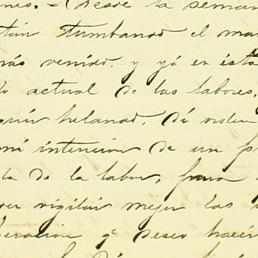 nes. = (Desde la seman
tín tumbando el ma
rás venido, y yá en ésta
o actual de las labores,
uir helando, dí orden
mi intencion de un p
ta de la labor, para
er vigilar mejor las
eracion q deseo hacer